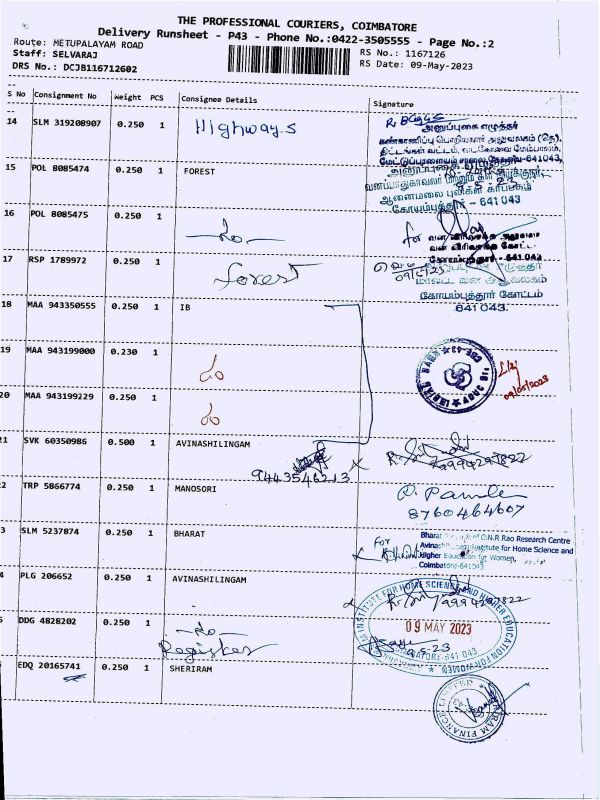 THE PROFESSIONAL COURIERS, COIMBATORE
Delivery Runsheet - P43 - Phone No.:0422-3505555 - Page No.:2
Route: METUPALAYAM ROAD
RS No.: 1167126
Staff: SELVARAJ
RS Date: 09-May-2023
DRS No.: DCJB116712602
S No Consignment No Weight PCS Consignee Details Signature
14 SLM 319208907 0.250 1 Highways
அனுப்புகை எழுத்தர்
மேட்டுப்பாளையம் சாலை கோவை-641043.
15 POL 8085474 0.250 1 FOREST
9-5-23
ஆனைமலை புலிகள் காப்பகம்
கோயம்புத்தூர் - 641 043
16 POL 8085475 0.250 1 -do-
for
17 RSP 1789972 0.250 1 forest
கோயம்புத்தூர் -641 043
கோயம்புத்தூர் கோட்டம்
641 043.
18 MAA 943350555 0.250 1 IB
19 MAA 943199000 0.230 1 do
09/05/2023
20 MAA 943199229 0.250 1 do
21 SVK 60350986 0.500 1 AVINASHILINGAM
9443546213
9994297822
2 TRP 5866774 0.250 1 MANOSORI
8760464607
3 SLM 5237874 0.250 1 BHARAT
for
Bharat C.N.R Rao Research Centre
Institute for Home Science and
Higher Education for Women,
Coimbatore-641043
4 PLG 206652 0.250 1 AVINASHILINGAM
9994297822
INSTITUTE FOR HOME SCIENCE AND HIGHER EDUCATION FOR WOMEN
09 MAY 2023
5 DDG 4828202 0.250 1 -do-
Register
EDQ 20165741 0.250 1 SHERIRAM